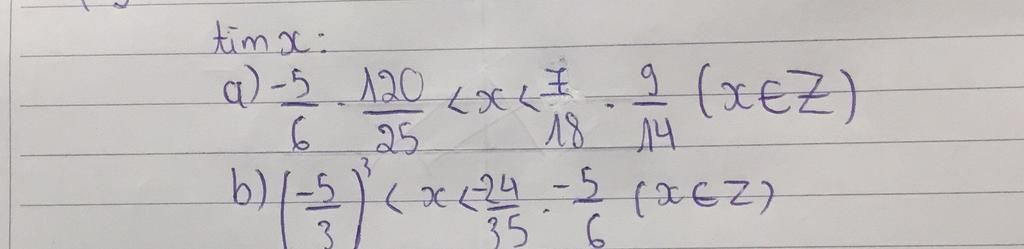 tìm x:
a) -5/6 . 120/25 < x < 7/18 . 9/14 (x ∈ Z)
b) (-5/3)³ < x < -24/35 . -5/6 (x ∈ Z)